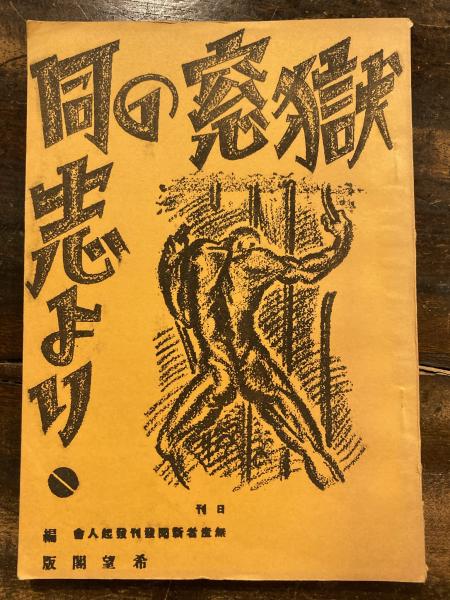 獄窓の
同志より
日刊
無産者新聞發刊發起人會 編
希望閣版